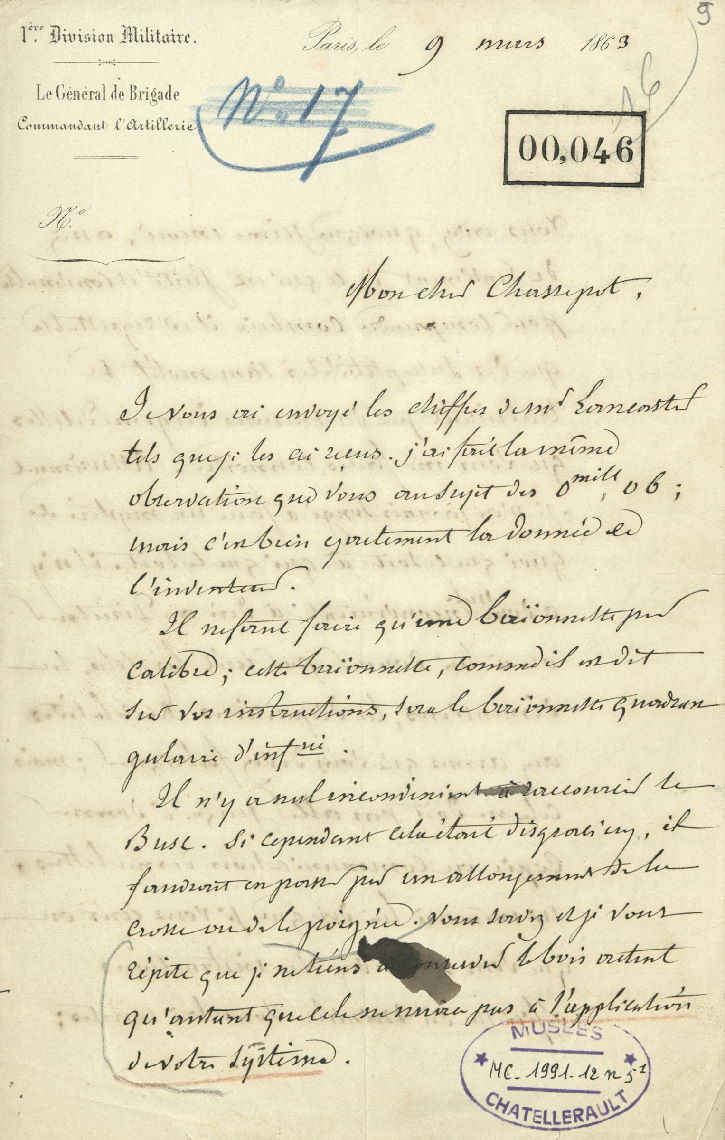 9
1ère Division Militaire.
Paris, le 9 mars 1863
Le Général de Brigade
Commandant l'Artillerie
No 17
16
00,046
N.o
Mon cher Chassepot,
Je vous ai envoyé les chiffres de mr Lancaster
tels que je les ai reçus. j'ai fait la même
observation que vous au sujet des 0mill, 06 ;
mais c'est bien exactement la donnée de
l'inventeur.
Il ne faut faire qu'une baïonnette par
calibre ; cette baïonnette, comme il est dit
sur vos instructions, sera la baïonnette quadran
gulaire d'infrie.
Il n'y a nul inconvénient à raccourcir le
Busc. Si cependant cela était disgracieux, il
faudrait en passer par un allongement de la
crosse ou de la poignée. Vous savez et je vous
répète que je ne tiens à conserver le bois autant
qu'autant que cela ne nuira pas à l'application
de votre système.
MUSÉES
MC. 1991-12 n 51
CHATELLERAULT